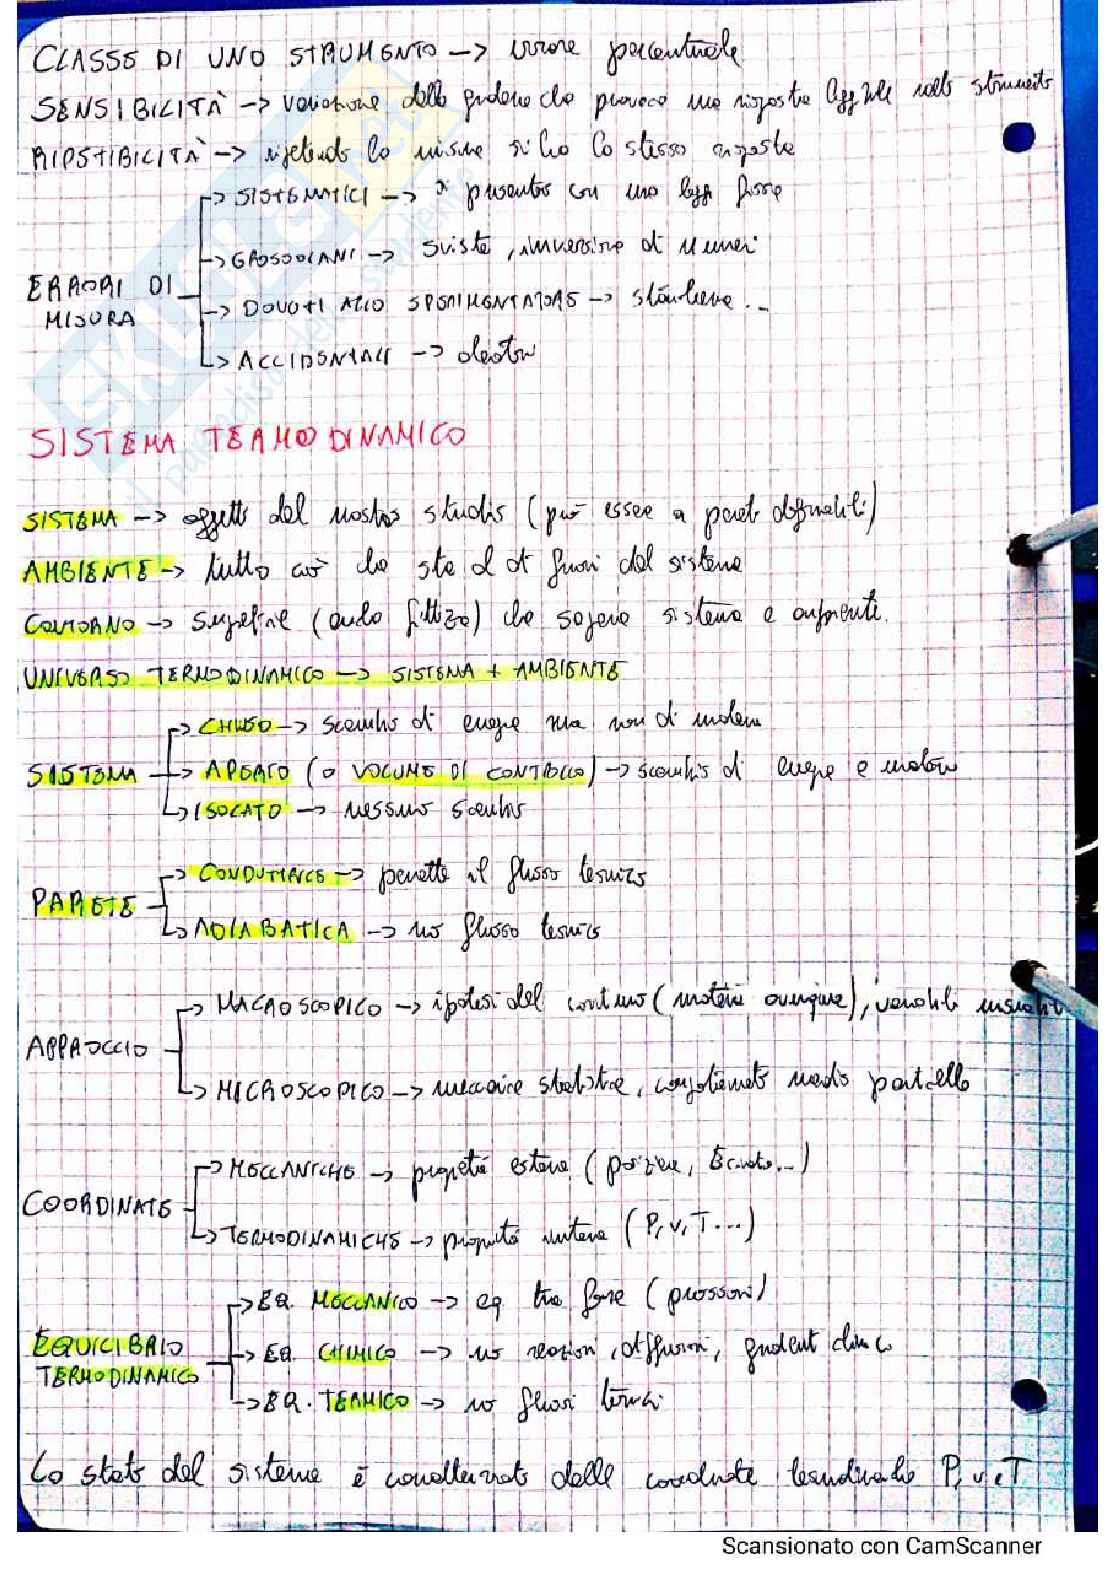 CLASSE DI UNO STRUMENTO -> errore percentuale
SENSIBILITÀ -> variazione della grandezza che provoca una risposta apprezzabile nello strumento
RIPETIBILITÀ -> ripetendo la misura si ha la stessa risposta
-> SISTEMATICI -> si presentano con una legge fissa
-> GROSSOLANI -> sviste, inversione di numeri
ERRORI DI MISURA
-> DOVUTI ALLO SPERIMENTATORE -> stanchezza...
-> ACCIDENTALI -> aleatori
SISTEMA TERMODINAMICO
SISTEMA -> oggetto del nostro studio (può essere a pareti deformabili)
AMBIENTE -> tutto ciò che sta al di fuori del sistema
CONTORNO -> superficie (anche fittizia) che separa sistema e
UNIVERSO TERMODINAMICO -> SISTEMA + AMBIENTE
-> CHIUSO -> scambio di energia ma non di materia
SISTEMA -> APERTO (o VOLUME DI CONTROLLO) -> scambio di energia e materia
-> ISOLATO -> nessuno scambio
-> CONDUTTRICE -> permette il flusso termico
PARETE
-> ADIABATICA -> no flusso termico
-> MACROSCOPICO -> ipotesi del continuo (materia omogenea), variabili misurabili
APPROCCIO
-> MICROSCOPICO -> meccanica statistica, comportamento medio particelle
-> MECCANICHE -> proprietà esterne (posizione, ...)
COORDINATE
-> TERMODINAMICHE -> proprietà interne (P, v, T...)
-> EQ. MECCANICO -> eq. tra forze (pressioni)
EQUILIBRIO TERMODINAMICO
-> EQ. CHIMICO -> no reazioni, diffusioni, gradienti
-> EQ. TERMICO -> no flussi termici
Lo stato del sistema è caratterizzato dalle coordinate termodinamiche P, v e T
Scansionato con CamScanner